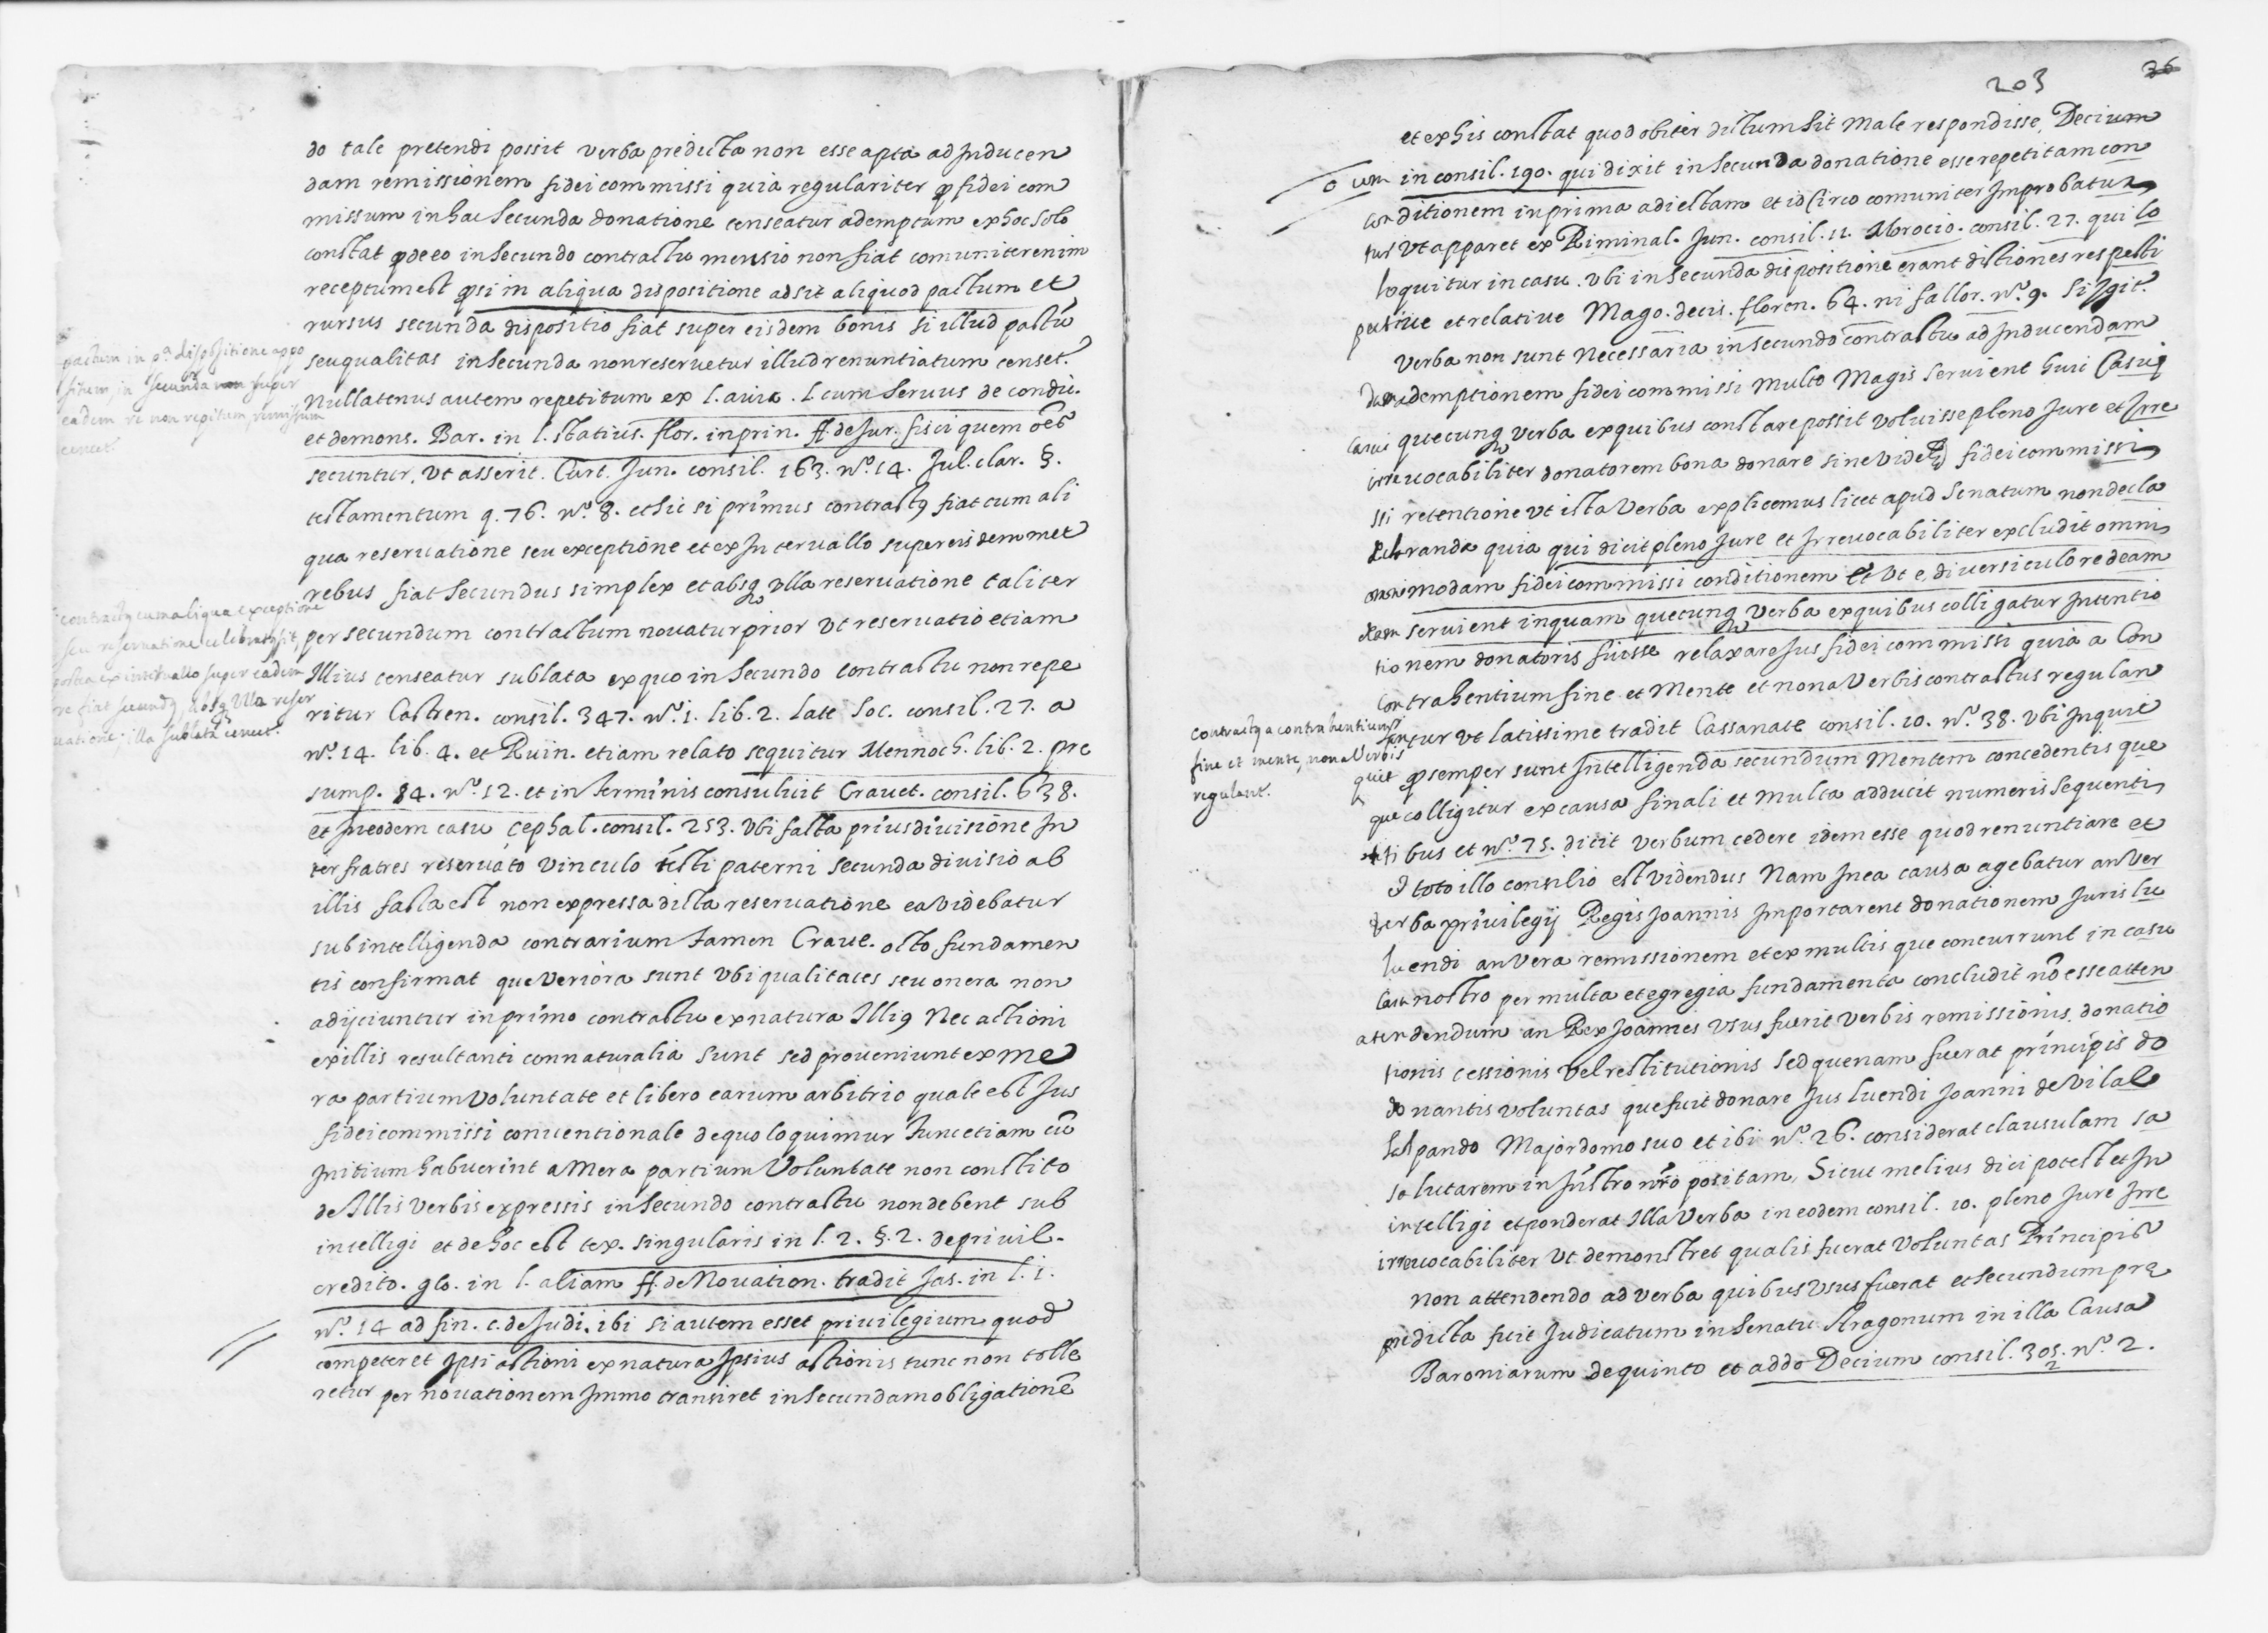 do tale pretendi possit verba predicta non esse apta ad Inducen
dam remissionem fideicommissi quia regulariter ꝙ fidei com
missum in hac secunda donatione censeatur ademptum ex hoc solo
constat ꝙ de eo in secundo contractu mensio non fiat comuniter enim
receptum est ꝙ si in aliqua dispositione adsit aliquod pactum et
rursus secunda dispositio fiat super eisdem bonis si illud pactũ
seu qualitas in secunda non reservetur illud renuntiatum censet.
pactum in p.ª dispositione appo
situm in secunda non super
eadem re non repititum, remissum
censet.
Nullatenus autem repetitum ex l. avia. l. cum servus de condic.
et demons. Bar. in l. statius. flor. in prin. ff. de Jur. fisci quem oẽs
secuntur, vt asserit. Curt. Jun. consil. 163. nº. 14. Jul. clar. §.
testamentum q. 76. nº. 8. et sic si primus contractꝰ fiat cum ali
qua reservatione seu exceptione et ex Intervallo super eisdem met
rebus fiat secundus simplex et absqꝫ vlla reservatione taliter
contractꝰ cum aliqua exceptione
seu reservatione celebratꝰ sit,
postea ex intervallo super eadem
re fiat secundꝰ absqꝫ vlla reser
vatione illa sublata censet.
per secundum contractum novatur prior vt reservatio etiam
Illius censeatur sublata ex quo in secundo contractu non repe
ritur Castren. consil. 347. nº. 1. lib. 2. late Soc. consil. 27. a
nº. 14. lib. 4. et Ruin. etiam relato sequitur Mennoch. lib. 2. pre
sump. 84. nº. 12. et in terminis consuluit Cravet. consil. 638.
et In eodem casu Cephal. consil. 253. vbi facta prius divisione In
ter fratres reservato vinculo testi paterni secunda divisio ab
illis facta est non expressa dicta reservatione ea videbatur
sub intelligenda contrarium tamen Crave. octo fundamen
tis confirmat que veriora sunt vbi qualitates seu onera non
adijciuntur in primo contractu ex natura Illiꝰ Nec actioni
ex illis resultanti connaturalia sunt sed proveniunt ex me
ra partium voluntate et libero earum arbitrio quale est Jus
fideicommissi conventionale de quo loquimur tunc etiam cũ
Initium habuerint a Mera partium voluntate non constito
de Illis verbis expressis in secundo contractu non debent sub
intelligi et de hoc est tex. singularis in l. 2. §. 2. de privil.
credito. glo. in l. aliam ff. de Novation. tradit Jas. in l. 1.
nº. 14 ad fin. c. de Judi. ibi si autem esset privilegium quod
competeret Ipsi actioni ex natura Ipsius actionis tunc non tolle
retur per novationem Immo transiret in secundam obligationẽ
203
36
et ex his constat quod obiter dictum sit Male respondisse, Decium
in consil. 190. qui dixit in secunda donatione esse repetitam con
ditionem in prima adiectam et idcirco comuniter Improbatur
vt apparet ex Riminal. Jun. consil. 11. Mrocio. consil. 27. qui lo
loquitur in casu. vbi in secunda dispositione erant dictiones respecti
pective et relative Mago. decis. floren. 64. ni fallor. nº. 9. si Igit.
Verba non sunt Necessaria in secundo contractu ad Inducendam
ademptionem fideicommissi Multo Magis servient huic Casui
Casui quecunqꝫ verba ex quibus constare possit voluisse pleno Jure et Irre
irrevocabiliter donatorem bona donare sine fideicommissi
ssi retentione vt ista Verba explicemus licet apud Senatum non decla
randa quia qui dicit pleno Jure et Irrevocabiliter excludit omni
modam fideicommissi conditionem et vt e, diversiculo redeam
servient inquam quecunqꝫ Verba ex quibus colligatur Intentio
tionem donatoris fuisse relaxare Jus fideicommissi quia a Con
Contrahentium fine et Mente et non a Verbis contractus regulan
contractꝰ a contrahentium
fine et mente, non a Verbis
regulant.
tur vt latissime tradit Cassanate consil. 10. nº. 38. vbi Inquit
quit ꝙ semper sunt Intelligenda secundum Mentem concedentis que
que colligitur ex causa finali et multa adducit numeris sequenti
tibus et nº. 75. dicit verbum cedere idem esse quod renuntiare et
toto illo consilio est videndus Nam In ea causa agebatur an ver
verba privilegij Regis Joannis Importarent donationem Juris lu
luendi an vera remissionem et ex multis que concurrunt in casu
Casu nostro per multa et egregia fundamenta concludit nõ esse atten
attendendum an Rex Joannes vsus fuerit verbis remissionis, donatio
tionis cessionis vel restitutionis sed quenam fuerat principis do
donantis voluntas que fuit donare Jus luendi Joanni de Vilal
pando Majordomo suo et ibi nº. 26. considerat clausulam sa
salutarem in Instro nro positam, Sicut melius dici potest et In
intelligi et ponderat Illa Verba in eodem consil. 10. pleno Jure Irre
irrevocabiliter vt demonstret qualis fuerat Voluntas Principis
non attendendo ad verba quibus Vsus fuerat et secundum pre
predicta fuit Judicatum in Senatu Aragonum in illa Causa
Baroniarum de quinto et addo Decium consil. 305. nº. 2.